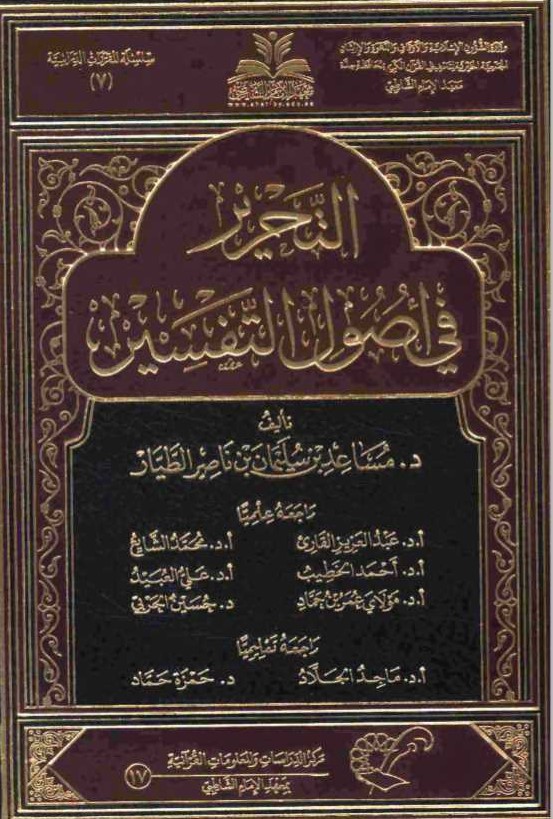 وزارة الشؤون الإسلامية والأوقاف والدعوة والإرشاد
الجمعية الخيرية لتحفيظ القرآن الكريم بمحافظة جدة
معهد الإمام الشاطبي
معهد الإمام الشاطبي
www.shatiby.edu.sa
سلسلة المقررات القرآنية
(٧)
التحرير
في أصول التفسير
تأليف
د. مساعد بن سليمان بن ناصر الطيار
راجعه علميًا
أ.د. عبد العزيز القارئ أ.د. محمد الشايع
أ.د. أحمد الخطيب أ.د. علي العبيد
أ.د. مولاي عمر بن حماد د. حسين الحربي
راجعه تعليميًا
أ.د. ماجد الجلاد د. حمزة حماد
مركز الدراسات والمعلومات القرآنية
بمعهد الإمام الشاطبي
١٧